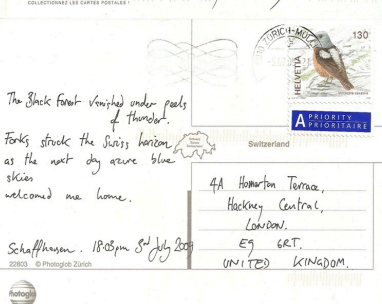 COLLECTIONNEZ LES CARTES POSTALES !
ZÜRICH-MÜL
130
HELVETIA
A PRIORITY
PRIORITAIRE
The Black Forest vanished under peels
of thunder.
Forks struck the Swiss horizon
as the next day azure blue
skies
welcomed me home.
Schaffhausen. 18:03pm 3rd July 2009
22803 © Photoglob Zürich
Switzerland
4A Homerton Terrace,
Hackney Central,
LONDON.
E9 6RT.
UNITED KINGDOM.
Photoglob